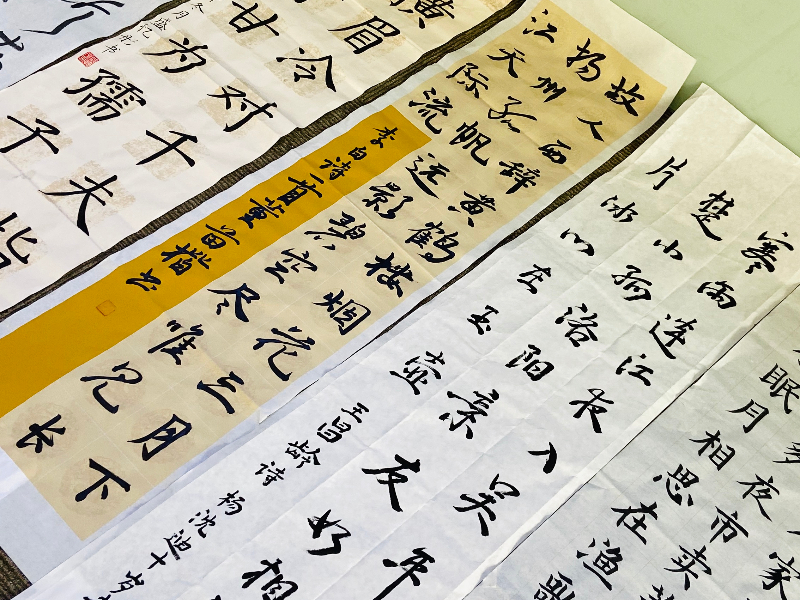 眉冷对千夫
甘为孺子
冬月盛忆
故人西辞黄鹤楼烟花三月下
扬州孤帆远影碧空尽唯见长
江天际流
李白诗一首董
寒雨连江夜入吴平
楚山孤洛阳亲友如相
片冰心在玉壶
王昌龄诗 杨沈迪十岁
家
多夜市卖
眠月相思在渔歌